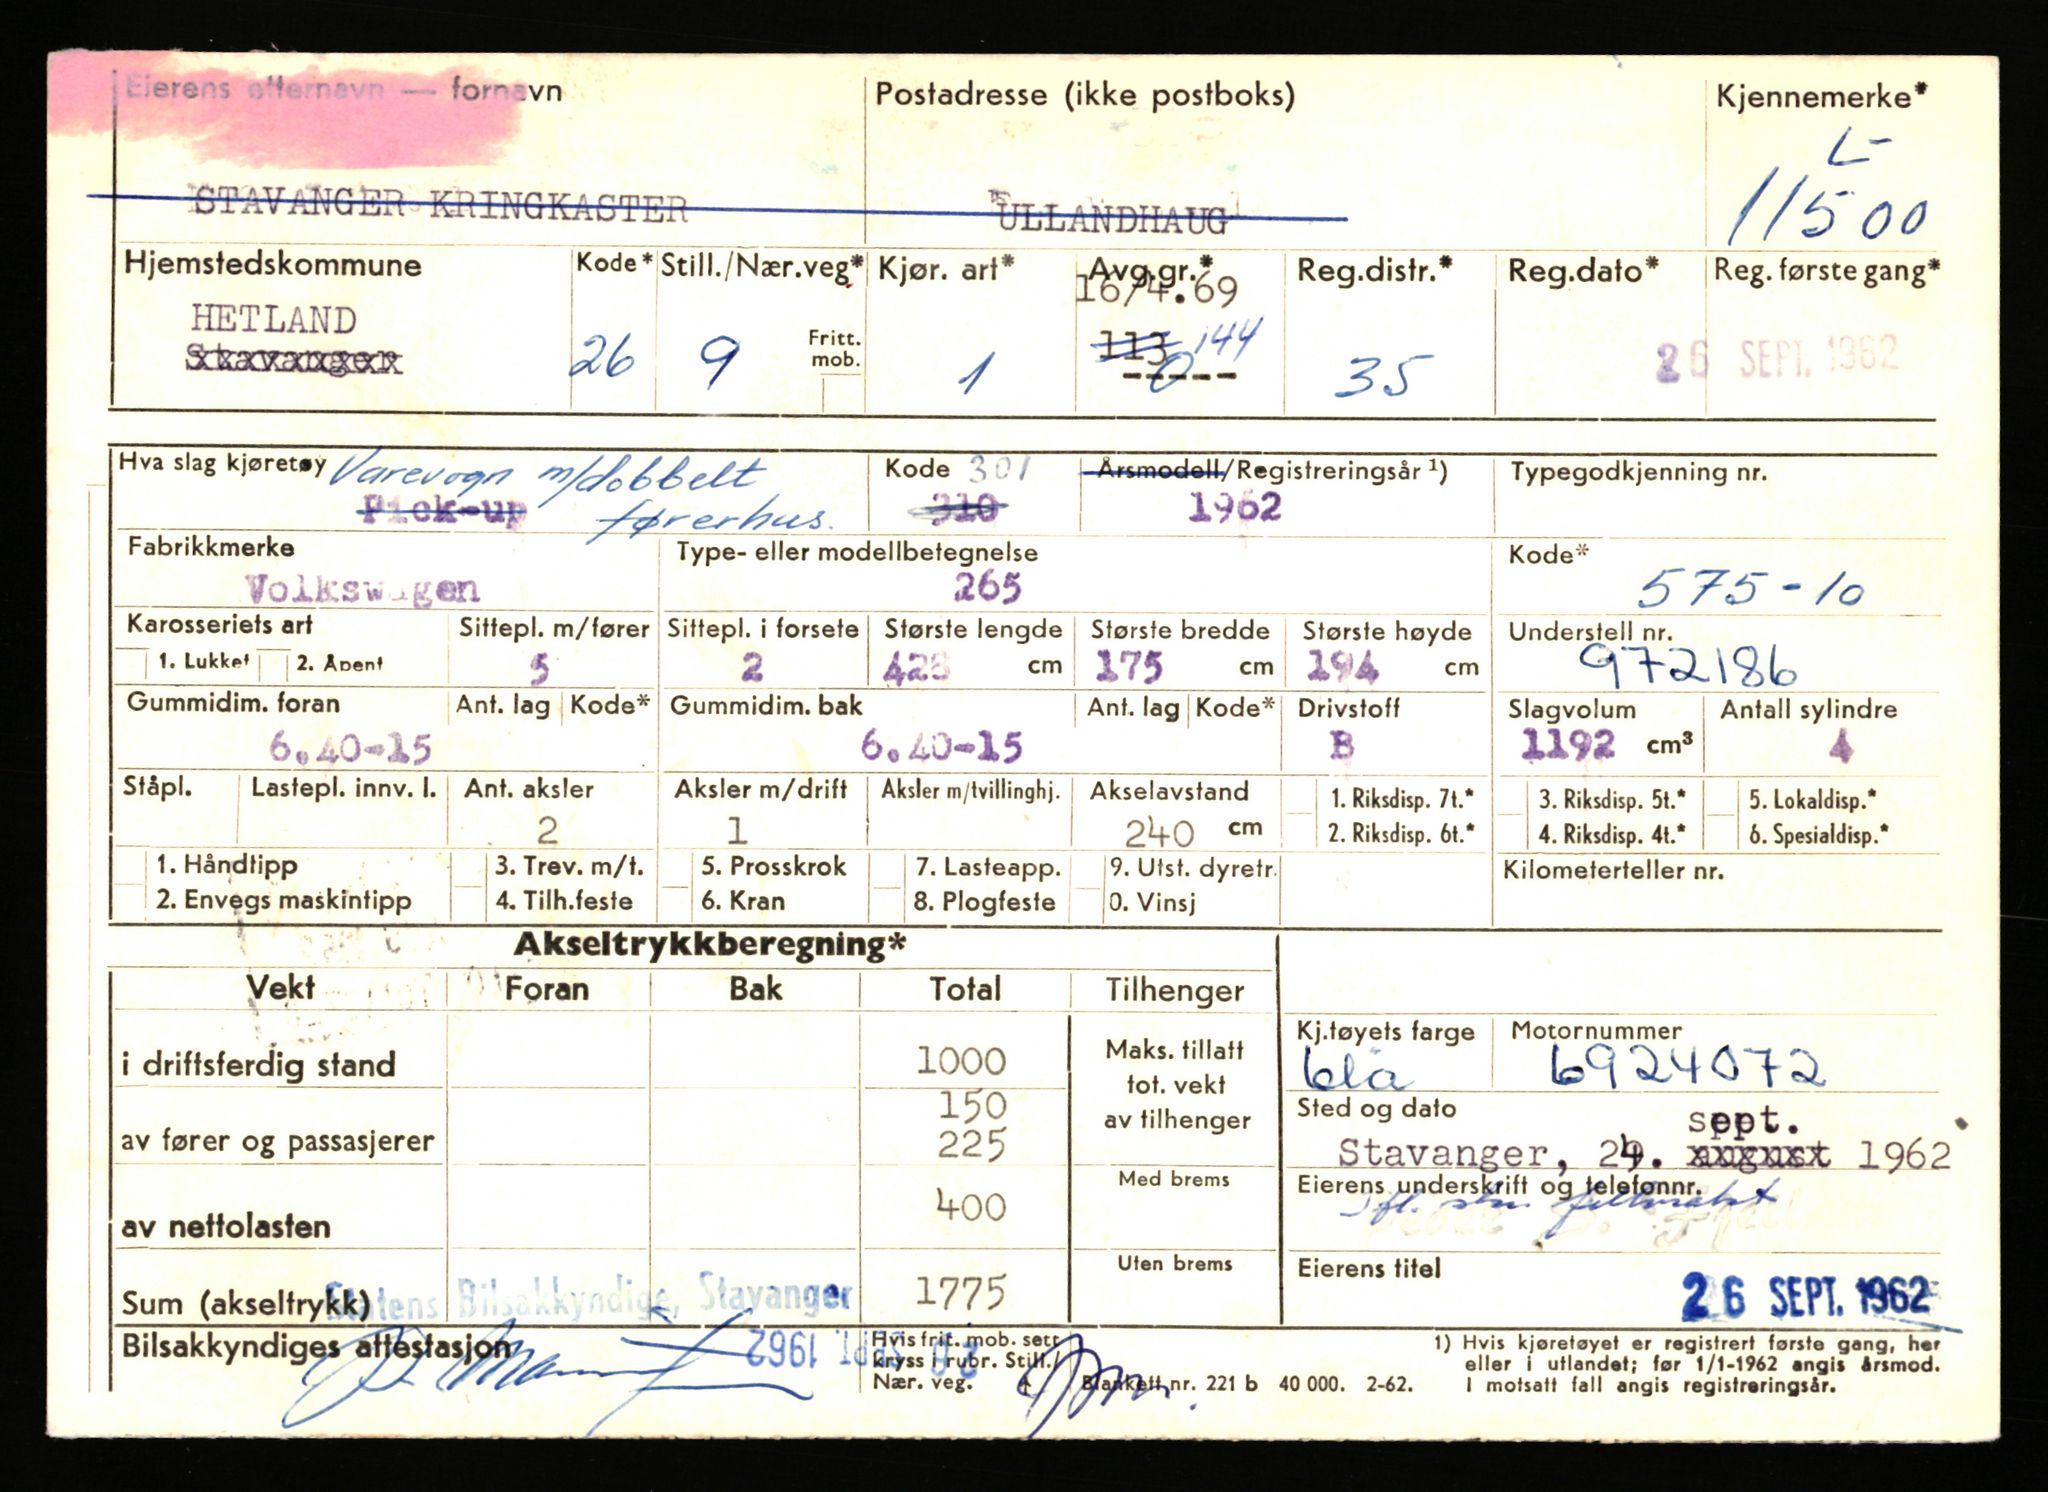 Eierens etternavn — fornavn
Postadresse (ikke postboks)
Kjennemerke*
L-
11500
STAVANGER KRINGKASTER
ULLANDHAUG
Hjemstedskommune
Kode*
Still./Nær.veg*
Kjør. art*
Avg.gr.*
Reg.distr.*
Reg.dato*
Reg. første gang*
16/4.69
HETLAND
Stavanger
26
9
Fritt. mob.
1
113
144
0
-----
35
26 SEPT. 1962
Hva slag kjøretøy
Varevogn m/dobbelt
førerhus.
Pick-up
Kode
301
310
Årsmodell/Registreringsår ¹)
1962
Typegodkjenning nr.
Fabrikkmerke
Volkswagen
Type- eller modellbetegnelse
265
Kode*
575-10
Karosseriets art
1. Lukket
2. Åpent
Sittepl. m/fører
5
Sittepl. i forsete
2
Største lengde
428 cm
Største bredde
175 cm
Største høyde
194 cm
Understell nr.
972186
Gummidim. foran
6.40-15
Ant. lag
Kode*
Gummidim. bak
6.40-15
Ant. lag
Kode*
Drivstoff
B
Slagvolum
1192 cm³
Antall sylindre
4
Ståpl.
Lastepl. innv. l.
Ant. aksler
2
Aksler m/drift
1
Aksler m/tvillinghj.
Akselavstand
240 cm
1. Riksdisp. 7t.*
2. Riksdisp. 6t.*
3. Riksdisp. 5t.*
4. Riksdisp. 4t.*
5. Lokaldisp.*
6. Spesialdisp.*
1. Håndtipp
2. Envegs maskintipp
3. Trev. m/t.
4. Tilh.feste
5. Prosskrok
6. Kran
7. Lasteapp.
8. Plogfeste
9. Utst. dyretr.
0. Vinsj
Kilometerteller nr.
Akseltrykkberegning*
Vekt
Foran
Bak
Total
Tilhenger
i driftsferdig stand
1000
av fører og passasjerer
150
225
av nettolasten
400
Sum (akseltrykk)
1775
Maks. tillatt
tot. vekt
av tilhenger
Med brems
Uten brems
Kj.tøyets farge
blå
Motornummer
6924072
Sted og dato
sept.
Stavanger, 24. august 1962
Eierens underskrift og telefonnr.
Eierens titel
26 SEPT. 1962
Statens Bilsakkyndige, Stavanger
Bilsakkyndiges attestasjon
SEPT. 1962
Hvis frit. mob. sett
kryss i rubr. Still./
Nær. veg.
Blankett nr. 221 b 40 000. 2-62.
1) Hvis kjøretøyet er registrert første gang, her
eller i utlandet; før 1/1-1962 angis årsmod.
I motsatt fall angis registreringsår.